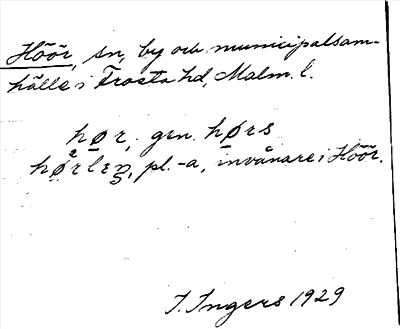 Höör, sn, by och municipalsam-
hälle i Frosta hd, Malm. l.
hør, gen. hørs
hørleŋ, pl. -a, invånare i Höör.
I. Ingers 1929